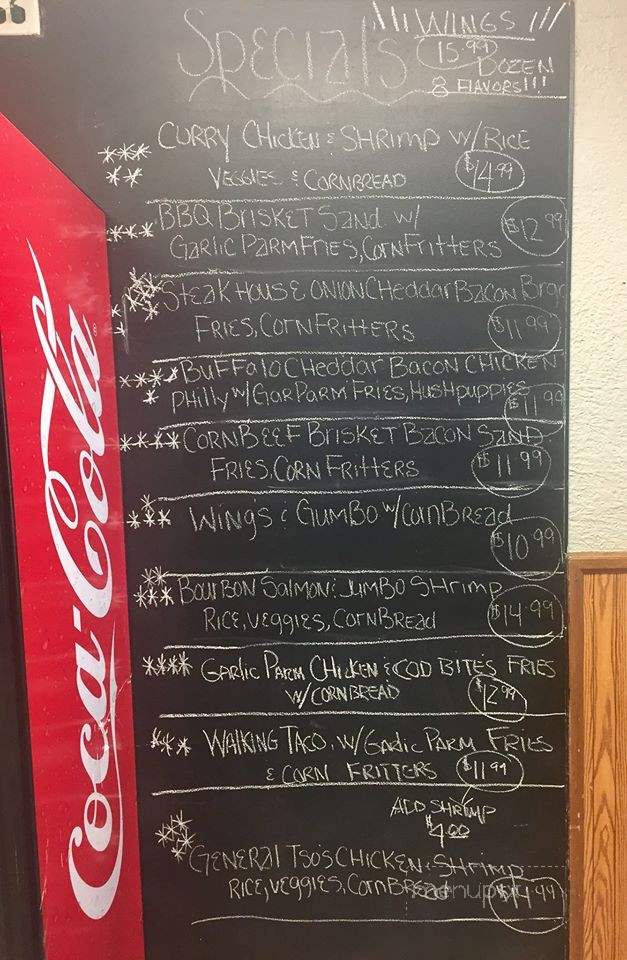 Specials
WINGS
15.99
DOZEN
8 FLAVORS!!!
CURRY CHICKEN & SHRIMP W/ RICE
VEGGIES & CORNBREAD
$14.99
BBQ BRISKET SAND W/
GARLIC PARM FRIES, CORN FRITTERS
$12.99
STEAK HOUSE ONION CHeddar BACON
FRIES, CORN FRITTERS
$11.99
BUFFAlO CHeddar BACON CHICKEN
PHILLY W/GAR PARM FRIES, HUSHPUPPIES
$11.99
CORN BEEF BRISKET BACON SAND
FRIES, CORN FRITTERS
$11.99
WING'S & GUMBO W/CORNBREAd
$10.99
BOURBON SAlMON & JUMBO SHrimp
RICE, VEGGIES, CORNBREAd
$14.99
GARLIC PARM CHICKEN & COD BITES FRIES
W/CORNBREAD
$12.99
WALKING TACO W/GARLIC PARM FRIES
& CORN FRITTERS
$11.99
ADD SHRIMP
$4.00
GENERAl TSO'S CHICKEN & SHRIMP
RICE, VEGGIES, CORNBREAd
$14.99
Coca-Cola